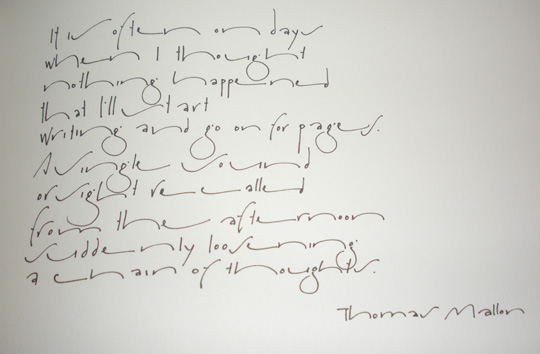 It is often on days
when I thought
nothing happened
that I'll start
writing and go on for pages.
A single sound
or sight recalled
from the afternoon
suddenly loosening
a chain of thoughts.
Thomas Mallon